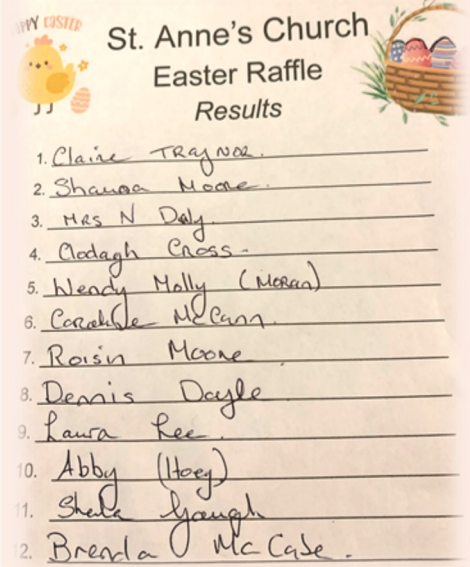 HAPPY EASTER
St. Anne's Church
Easter Raffle
Results
1. Claire TRAYNOR.
2. Shauna Moore.
3. MRS N Daly
4. Clodagh Cross -
5. Wendy Molly (Moran)
6. McCann.
7. Roisin Moore
8. Dennis Doyle
9. Laura Lee.
10. Abby (Hoey)
11. Sheila Gough
12. Brenda McCabe.